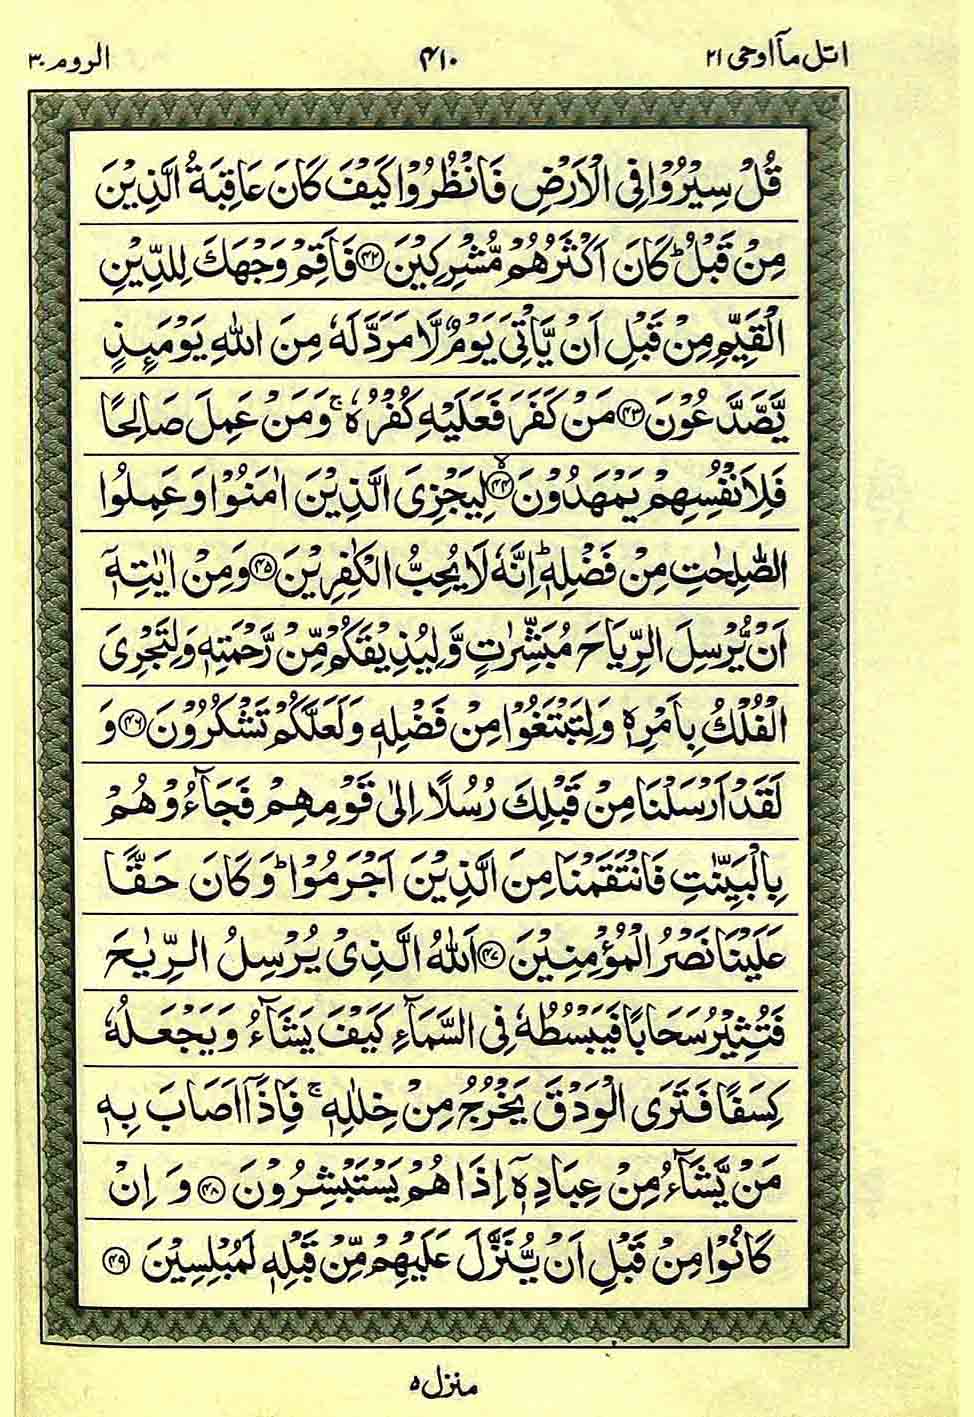 اتل مآ اوحی ۲۱ ۴۱۰ الروم ۳۰
قُلْ سِیْرُوْا فِی الْاَرْضِ فَانْظُرُوْا كَیْفَ كَانَ عَاقِبَةُ الَّذِیْنَ
مِنْ قَبْلُ ؕ كَانَ اَكْثَرُهُمْ مُّشْرِكِیْنَ ﴿۴۲﴾ فَاَقِمْ وَجْهَكَ لِلدِّیْنِ
الْقَیِّمِ مِنْ قَبْلِ اَنْ یَّاْتِیَ یَوْمٌ لَّا مَرَدَّ لَهٗ مِنَ اللّٰهِ یَوْمَىِٕذٍ
یَّصَّدَّعُوْنَ ﴿۴۳﴾ مَنْ كَفَرَ فَعَلَیْهِ كُفْرُهٗ ۚ وَ مَنْ عَمِلَ صَالِحًا
فَلِاَنْفُسِهِمْ یَمْهَدُوْنَ ﴿۴۴﴾ لِیَجْزِیَ الَّذِیْنَ اٰمَنُوْا وَ عَمِلُوا
الصّٰلِحٰتِ مِنْ فَضْلِهٖ ؕ اِنَّهٗ لَا یُحِبُّ الْكٰفِرِیْنَ ﴿۴۵﴾ وَ مِنْ اٰیٰتِهٖۤ
اَنْ یُّرْسِلَ الرِّیَاحَ مُبَشِّرٰتٍ وَّ لِیُذِیْقَكُمْ مِّنْ رَّحْمَتِهٖ وَ لِتَجْرِیَ
الْفُلْكُ بِاَمْرِهٖ وَ لِتَبْتَغُوْا مِنْ فَضْلِهٖ وَ لَعَلَّكُمْ تَشْكُرُوْنَ ﴿۴۶﴾ وَ
لَقَدْ اَرْسَلْنَا مِنْ قَبْلِكَ رُسُلًا اِلٰی قَوْمِهِمْ فَجَآءُوْهُمْ
بِالْبَیِّنٰتِ فَانْتَقَمْنَا مِنَ الَّذِیْنَ اَجْرَمُوْا ؕ وَ كَانَ حَقًّا
عَلَیْنَا نَصْرُ الْمُؤْمِنِیْنَ ﴿۴۷﴾ اَللّٰهُ الَّذِیْ یُرْسِلُ الرِّیٰحَ
فَتُثِیْرُ سَحَابًا فَیَبْسُطُهٗ فِی السَّمَآءِ كَیْفَ یَشَآءُ وَ یَجْعَلُهٗ
كِسَفًا فَتَرَی الْوَدْقَ یَخْرُجُ مِنْ خِلٰلِهٖ ۚ فَاِذَاۤ اَصَابَ بِهٖ
مَنْ یَّشَآءُ مِنْ عِبَادِهٖۤ اِذَا هُمْ یَسْتَبْشِرُوْنَ ﴿۴۸﴾ وَ اِنْ
كَانُوْا مِنْ قَبْلِ اَنْ یُّنَزَّلَ عَلَیْهِمْ مِّنْ قَبْلِهٖ لَمُبْلِسِیْنَ ﴿۴۹﴾
منزل ۵